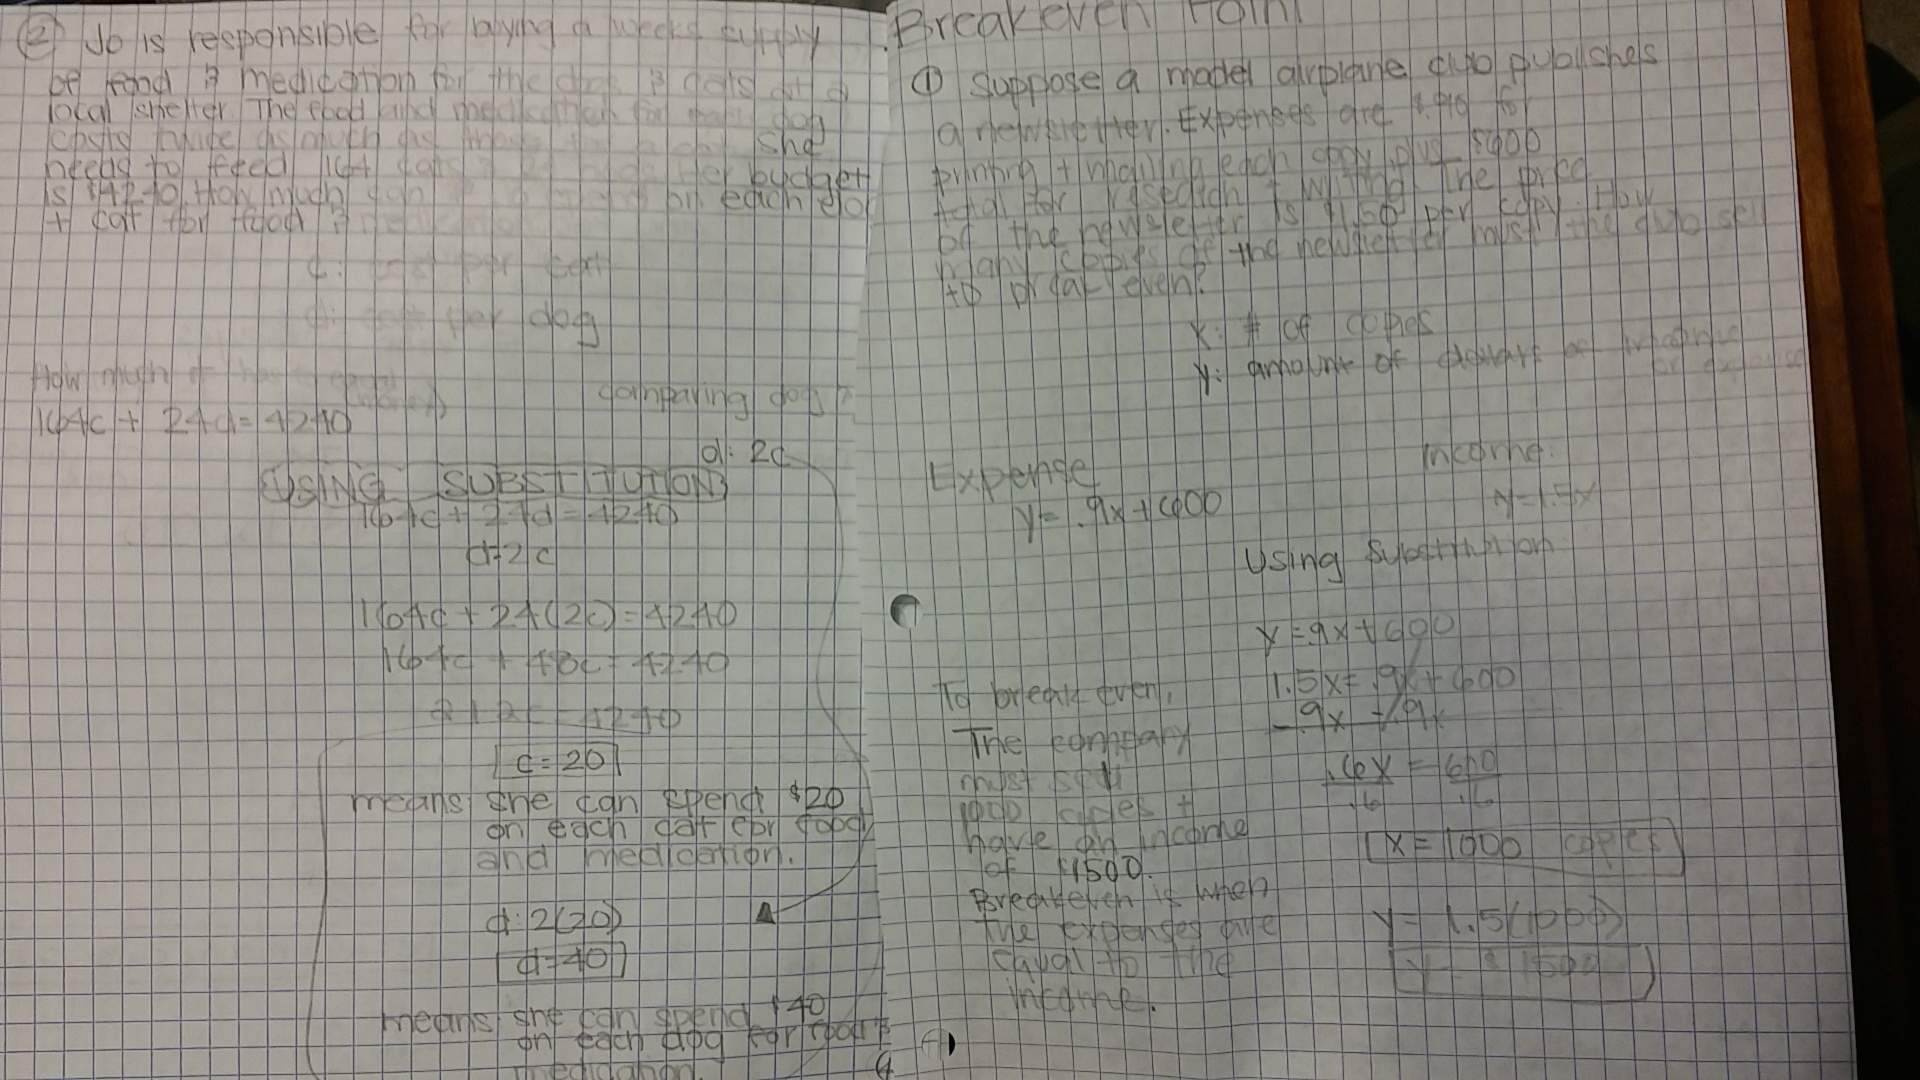 ② Jo is responsible for buying a weeks supply
of food & medication for the dogs & cats at a
local shelter. The food and medication for each dog
costs twice as much as those for a cat. She
needs to feed 164 cats & 24 dogs. Her budget
is $4240. How much can on each dog
+ cat for food &
c: cost per cat
d: cost per dog
How much it
164c + 24d = 4240
comparing dog &
d: 2c
USING SUBSTITUTION
164c + 24d = 4240
d=2c
164c + 24(2c) = 4240
164c + 48c = 4240
212c = 4240
c = 20
means she can spend $20
on each cat for food
and medication.
d: 2(20)
d=40
means she can spend $40
on each dog for food &
medication.
Breakeven Point
① Suppose a model airplane club publishes
a newsletter. Expenses are $.90 for
printing + mailing each copy, plus $600
total for research + writing. The price
of the newsletter is $1.50 per copy. How
many copies of the newsletter must the club sell
to break even?
x: # of copies
y: amount of dollars of
Expense
y= .9x+600
Income:
y=1.5x
Using Substitution
y = .9x+600
1.5x= .9x+600
-.9x -.9x
.6x = 600
.6 .6
x = 1000 copies
y = 1.5(1000)
y = $1500
To break even,
The company
must sell
1000 copies +
have an income
of $1500.
Breakeven is when
the expenses are
equal to the
income.